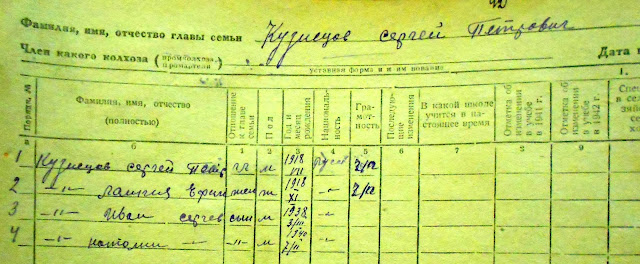 Фамилия, имя, отчество главы семьи Кузнецов Сергей Петрович
Член какого колхоза (промколхоза, промартели)
уставная форма и наименование
Дата в
1.
№ Порядк.
Фамилия, имя, отчество (полностью)
Отношение к главе семьи
Пол
Год и месяц рождения
Национальность
Грамотность
Последующие изменения
В какой школе учится в настоящее время
Отметка об изменении в учебе в 1941 г.
Отметка об изменении в учебе в 1942 г.
б 1 2 3 4 5 6 7 8 9
1 Кузнецов Сергей гл м 1918 VII
2 -"- жен ж 1918 XI -"-
3 -"- Иван Сергев сын м 1938 -"-
4 -"- -"- -"- м 1940 -"-